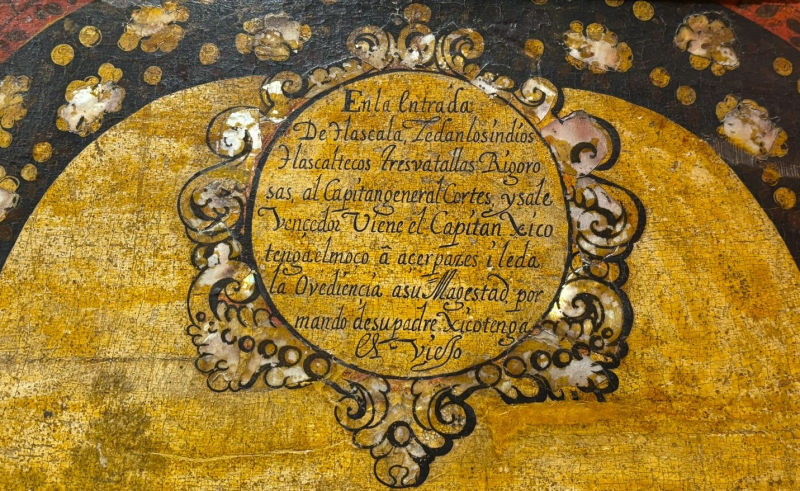 En la Entrada
De tlascala, Ledanlosindios
tlascaltecos tresvatallas Rigoro
sas, al Capitangeneral Cortes, ysale
Vencedor Viene el Capitan Xico
tenga, elmoco â açerpazes i leda
la Ovediencia asu Magestad por
mando desupadre, Xicotenga
el Viesso